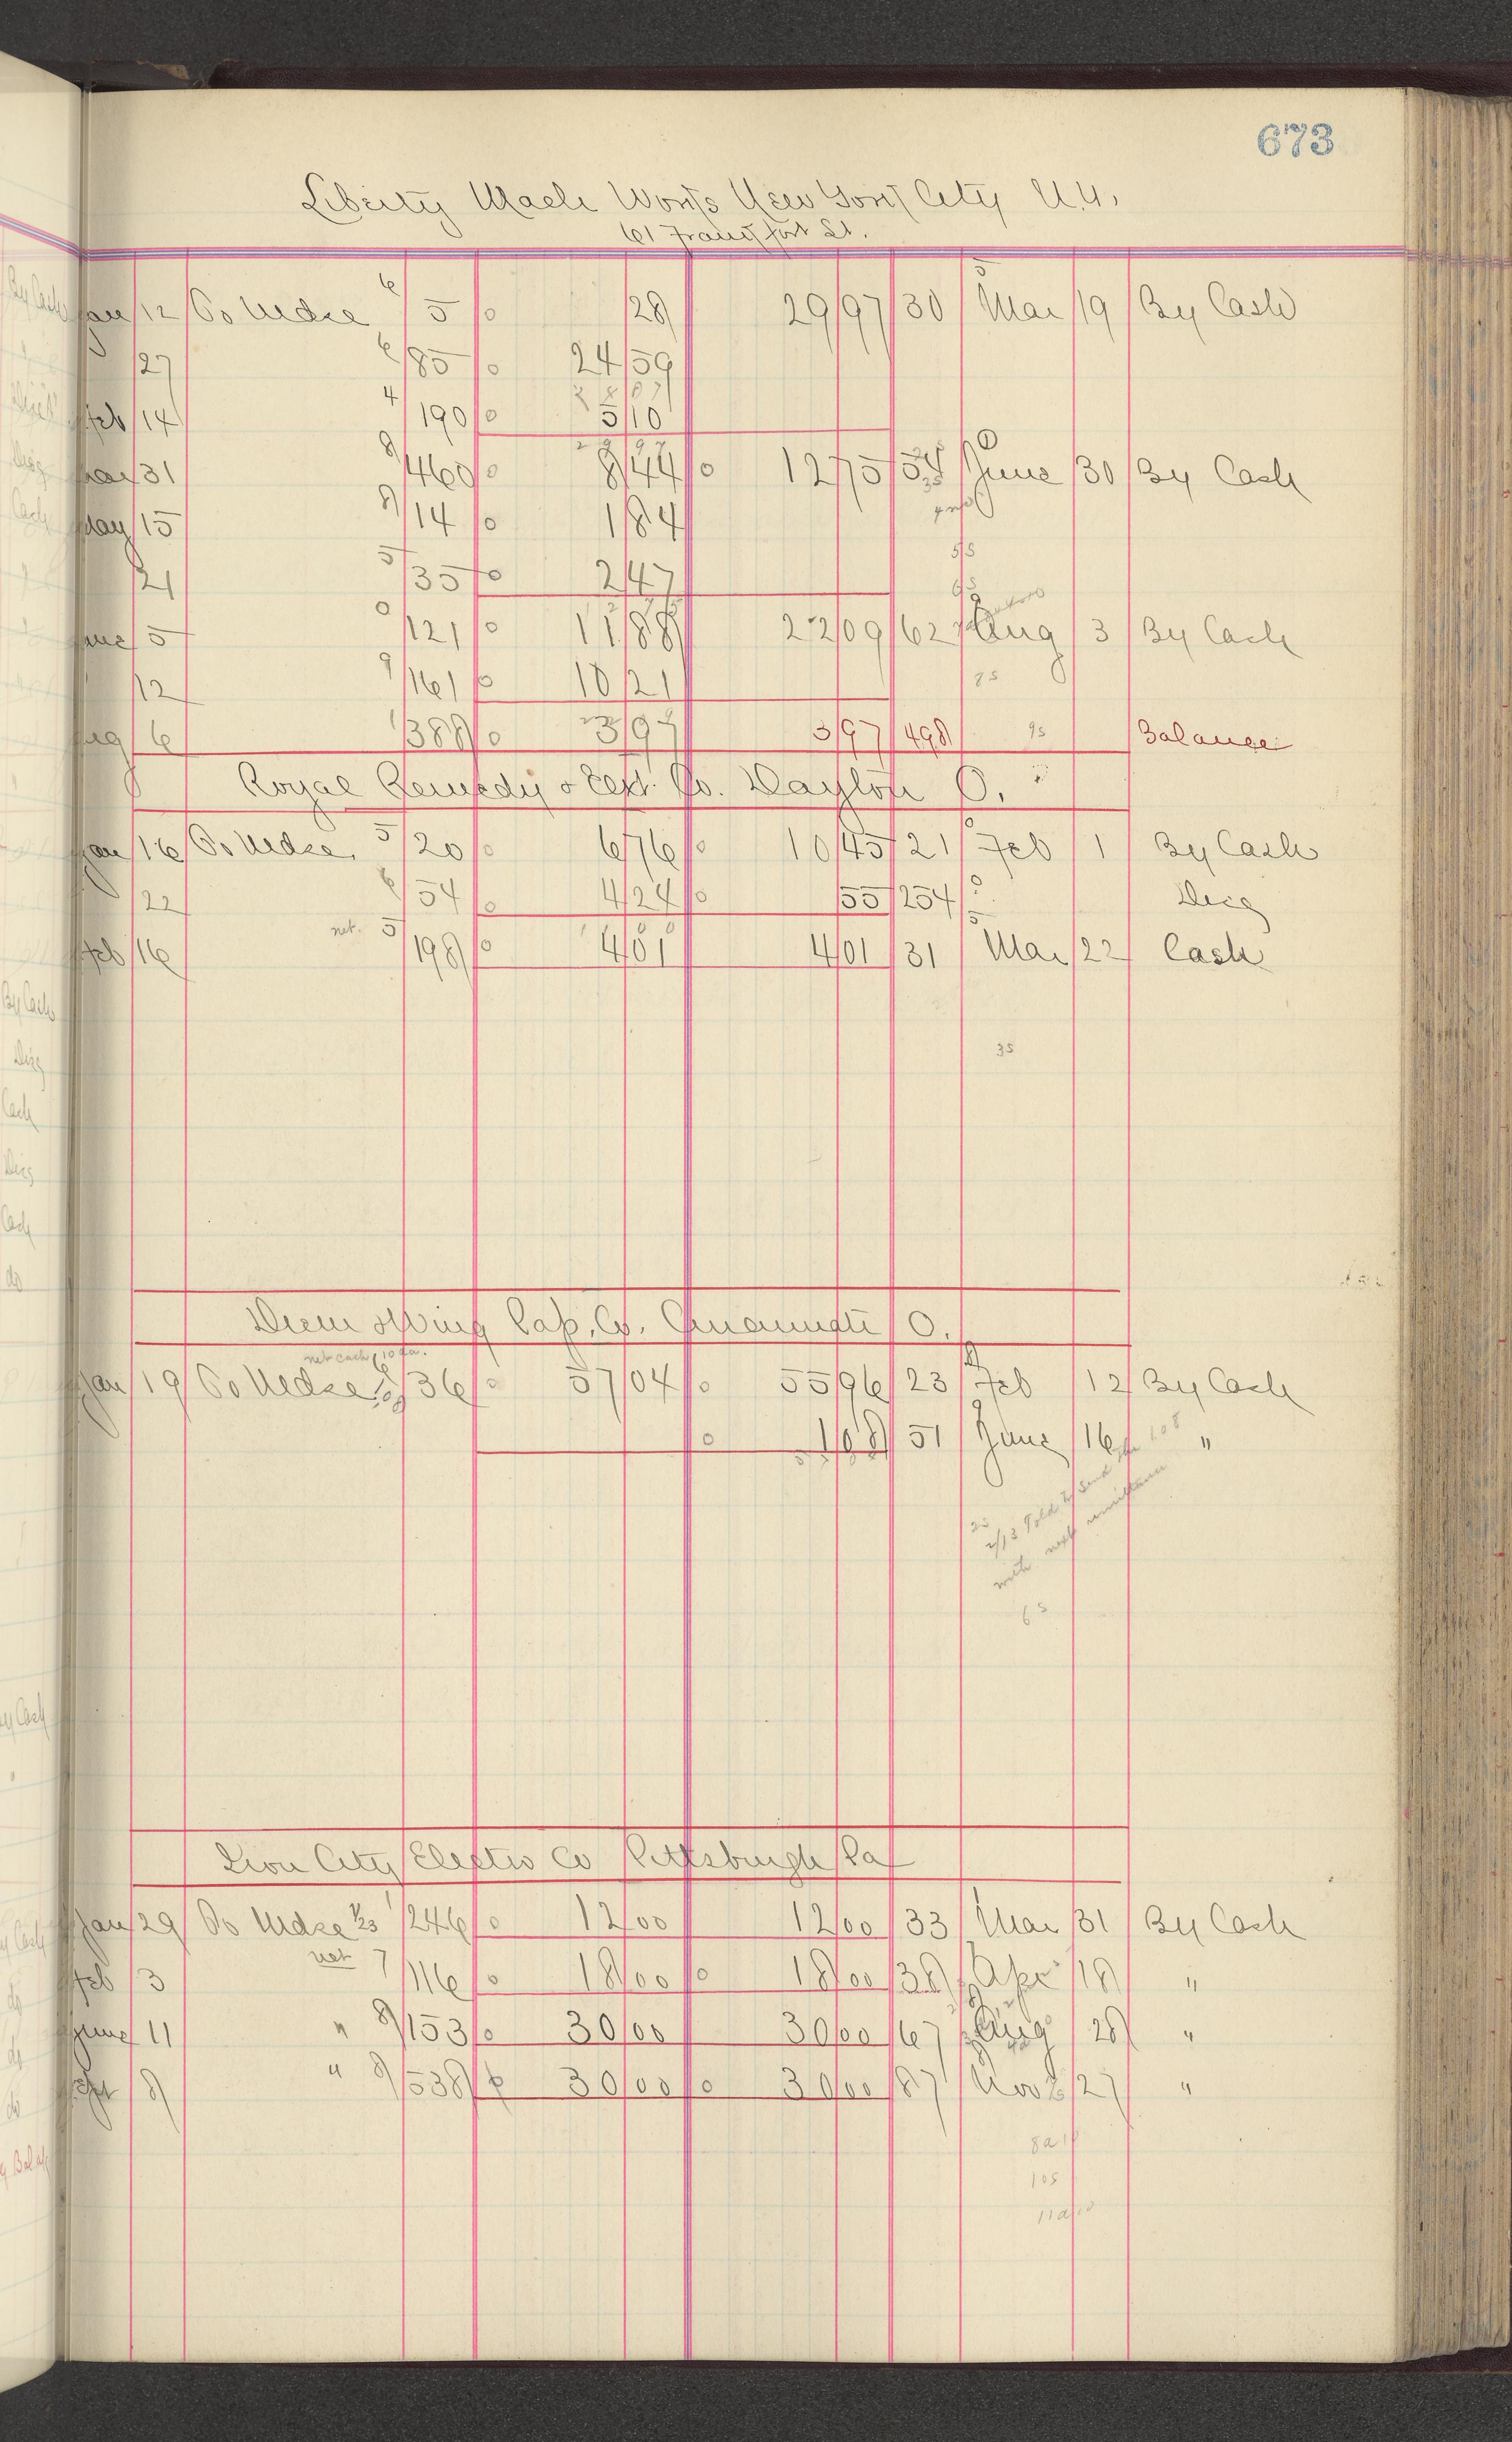 673
Liberty Mach Works New York City N.Y.
61 Frankfort St.
Jan 12 To Mdse 6/5 0 28 29 97 30 Mar 19 By Cash
27 6/85 0 24 59
Feb 14 4/190 0 5 10
29 97
Mar 31 8/460 0 8 44 0 12 75 54 June 30 By Cash
May 15 8/14 0 1 84
5/5
21 5/35 0 2 47
June 5 0/121 0 11 88 22 09 62 Aug 3 By Cash
12 9/161 0 10 21
Aug 6 1/388 0 3 97 3 97 498 9s Balance
Royal Remedy & Ext. Co. Dayton O.
Jan 16 To Mdse 5/20 0 6 76 0 10 45 21 Feb 1 By Cash
22 6/54 0 4 24 0 55 254 Disc
Feb 16 net. 5/198 0 4 01 4 01 31 Mar 22 Cash
3s
Diem & Wing Pap. Co. Cincinnati O.
net cash 10 da.
Jan 19 To Mdse 36 0 57 04 0 55 96 23 Feb 12 By Cash
0 1 08 51 June 16 "
2/13 Told to send the 108
with next remittance
6s
Iron City Electric Co Pittsburgh Pa
Jan 29 To Mdse 1/23 1/246 0 12 00 12 00 33 Mar 31 By Cash
Feb 3 net 7/116 0 18 00 0 18 00 38 Apr 18 "
June 11 " 8/153 0 30 00 30 00 67 Aug 28 "
Sept 8 " 8/538 30 00 0 30 00 87 Nov 27 "
8a10
10s
11a10